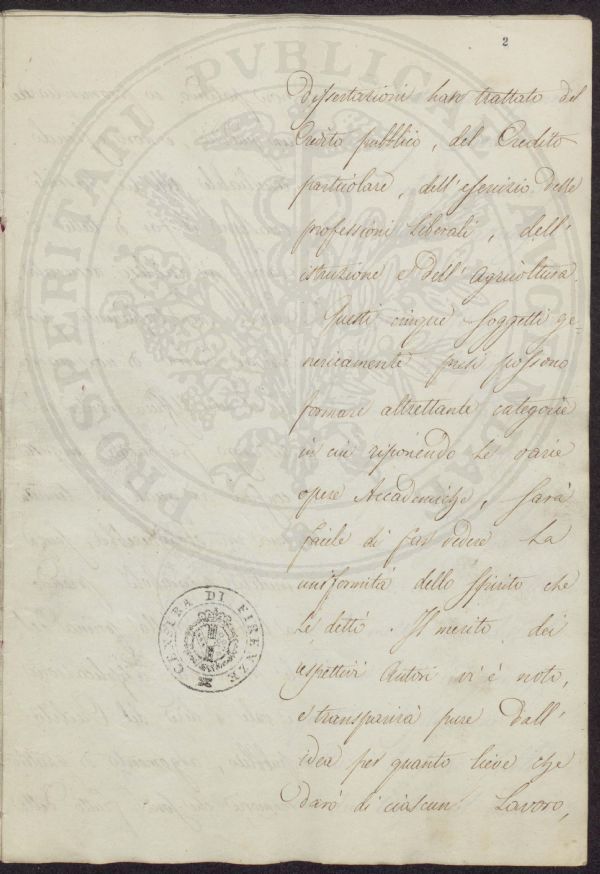 2
Dissertazioni han trattato del
Credito pubblico, del Credito
particolare, dell'esercizio delle
professioni liberali, dell'
istruzione e dell'Agricoltura.
Questi cinque soggetti ge=
nericamente presi possono
formare altrettante categorie
in cui riponendo le varie
opere Accademiche, sarà
facile di far vedere la
uniformità dello spirito che
le dettò. Il merito dei
rispettivi Autori vi è noto,
e transparirà pure dall'
idea per quanto lieve che
darò di ciascun Lavoro,
CENSURA DI FIRENZE
PROSPERITATI PUBLICAE AUGENDAE